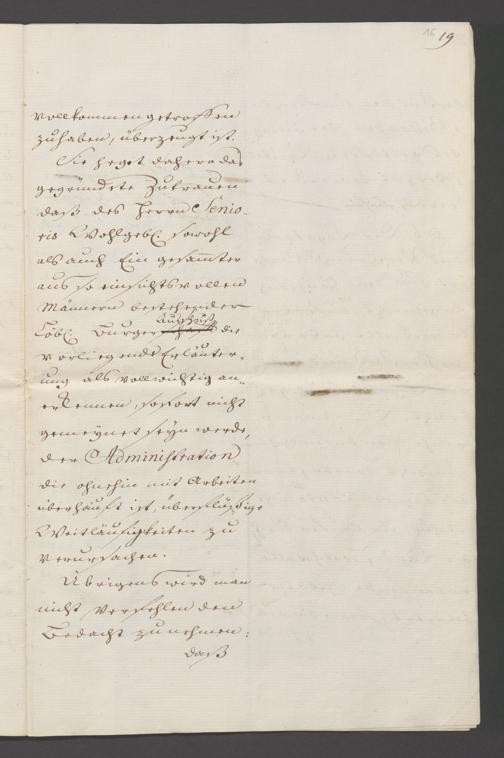 16 19
vollkommen getroffen
zuhaben, überzeugt ist.
Sie heget dahero das
gegründete Zutrauen
daß des Herrn Senio-
ris Wohlgeb: sowohl
als auch Ein gesammter
aus so einsichtsvollen
Männern bestehender
Ausschuß
Löbl: Burger die
vorliegende Erläuter-
ung als vollwichtig an-
erkennen, sofort nicht
gemeynet seyn werde,
der Administration
die ohnehin mit Arbeiten
überhäuft ist, überflüßige
Weitläufigkeiten zu
verursachen.
Übrigens wird man
nicht verfehlen den
Bedacht zunehmen:
daß